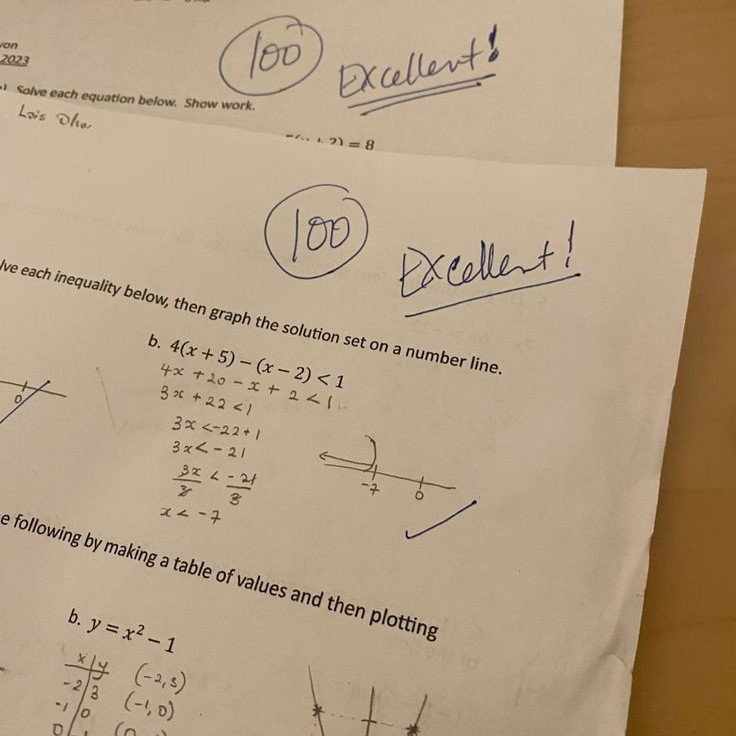 2023
100
Excellent!
Solve each equation below. Show work.
Lois
2) = 8
100
Excellent!
lve each inequality below, then graph the solution set on a number line.
b. 4(x + 5) – (x – 2) < 1
4x + 20 - x + 2 < 1
3x + 22 < 1
3x < -22 + 1
3x < -21
3x < -21
3 3
x < -7
0
-7 0
e following by making a table of values and then plotting
b. y = x² – 1
x | y
-2 | 3 (-2, 3)
-1 | 0 (-1, 0)
0